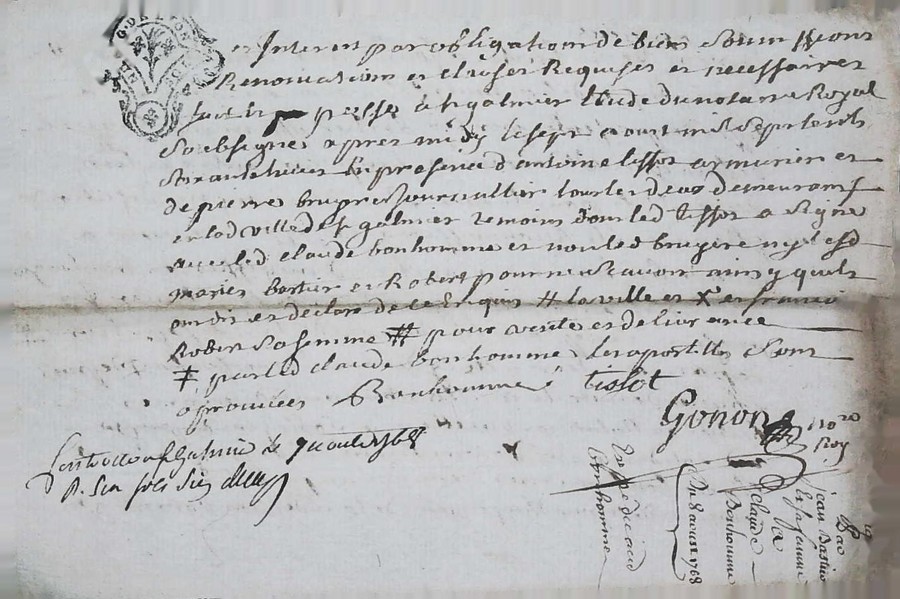 G. DE LYON
et Interest par obligation de biens Soumissions
Renonciations et clauses Requises et necessaires
fait et passé a St galmier Etude du notaire Royal
Soubsigné apres midy le sept aoust mil Sept cents
Soixante huict En presence d'antoine tissot armurier et
de pierre bruyere Journallier tous les deux demeurants
en lad ville de St galmier temoins dont led tissot a Signé
avec led claude bonhomme et non led bruyere ny lesd
mariés bastie et Robert pour ne Scavoir ainsy quils
ont dit et declaré de ce Enquis # la ville et X et francoise
Robert Sa femme # pour vente et delivrance
‡ par led claude bonhomme les apostilles Sont
aprouvées Bonhomme tissot
Gonon no.re Roy
Controllé a St Galmier le 9 aoust 1768
R. Six sols Six den
Expedié aud
bonhomme
Du 8 aoust 1768
claude
Bonhomme
jean Bastie
et sa femme